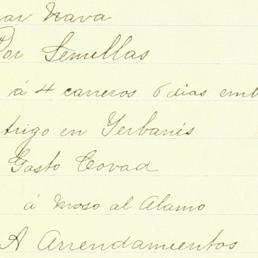 ar Nava
Por Semillas
á 4 carreros 6 dias emb
trigo en Yerbanis
Gasto Covad
á Moso al Alamo
A Arrendamientos